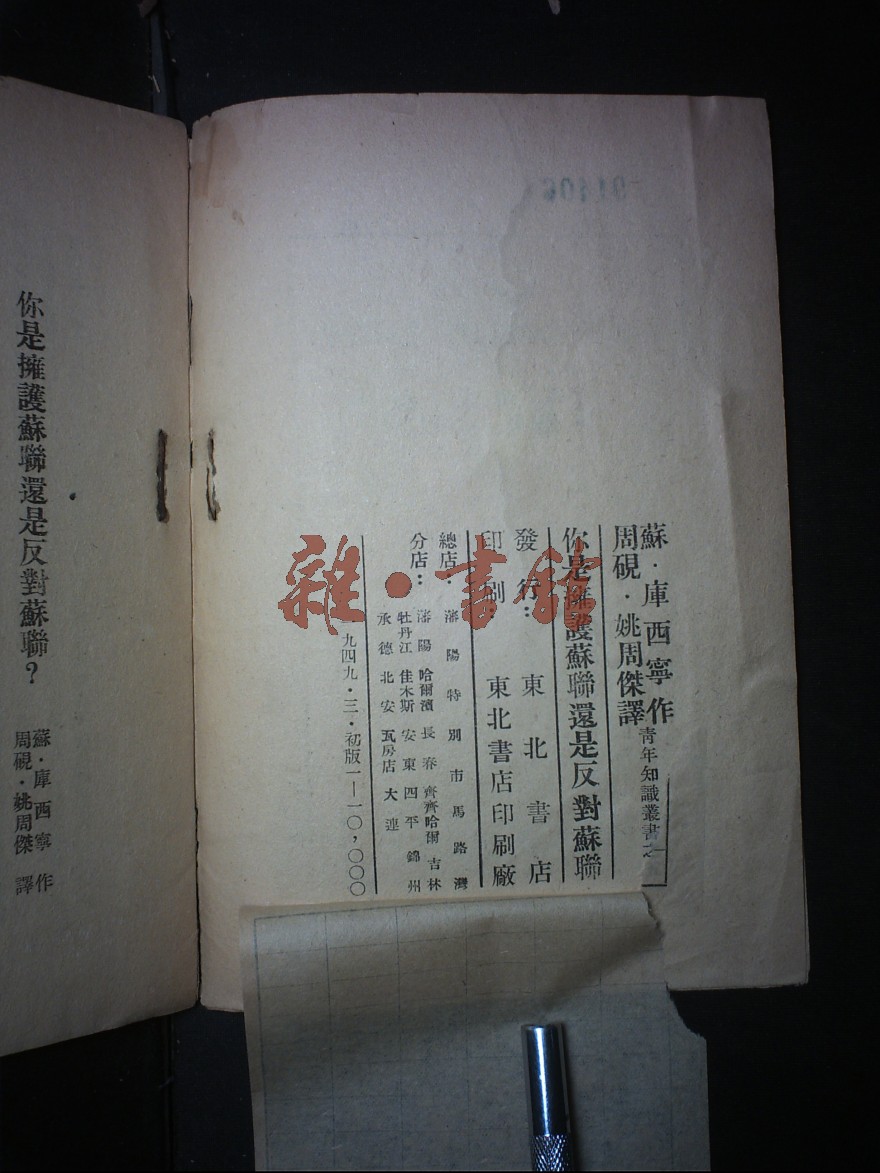 蘇·庫西寧作
周硯·姚周傑譯
青年知識叢書之一
你是擁護蘇聯還是反對蘇聯
發行：東北書店
印刷：東北書店印刷廠
總店：瀋陽特別市馬路灣
分店：瀋陽 哈爾濱 長春 齊齊哈爾 吉林
牡丹江 佳木斯 安東 四平 錦州
承德 北安 瓦房店 大連
一九四九·三·初版一—一〇,〇〇〇
你是擁護蘇聯還是反對蘇聯？
蘇·庫西寧 作
周硯·姚周傑 譯
雜·書館
91406